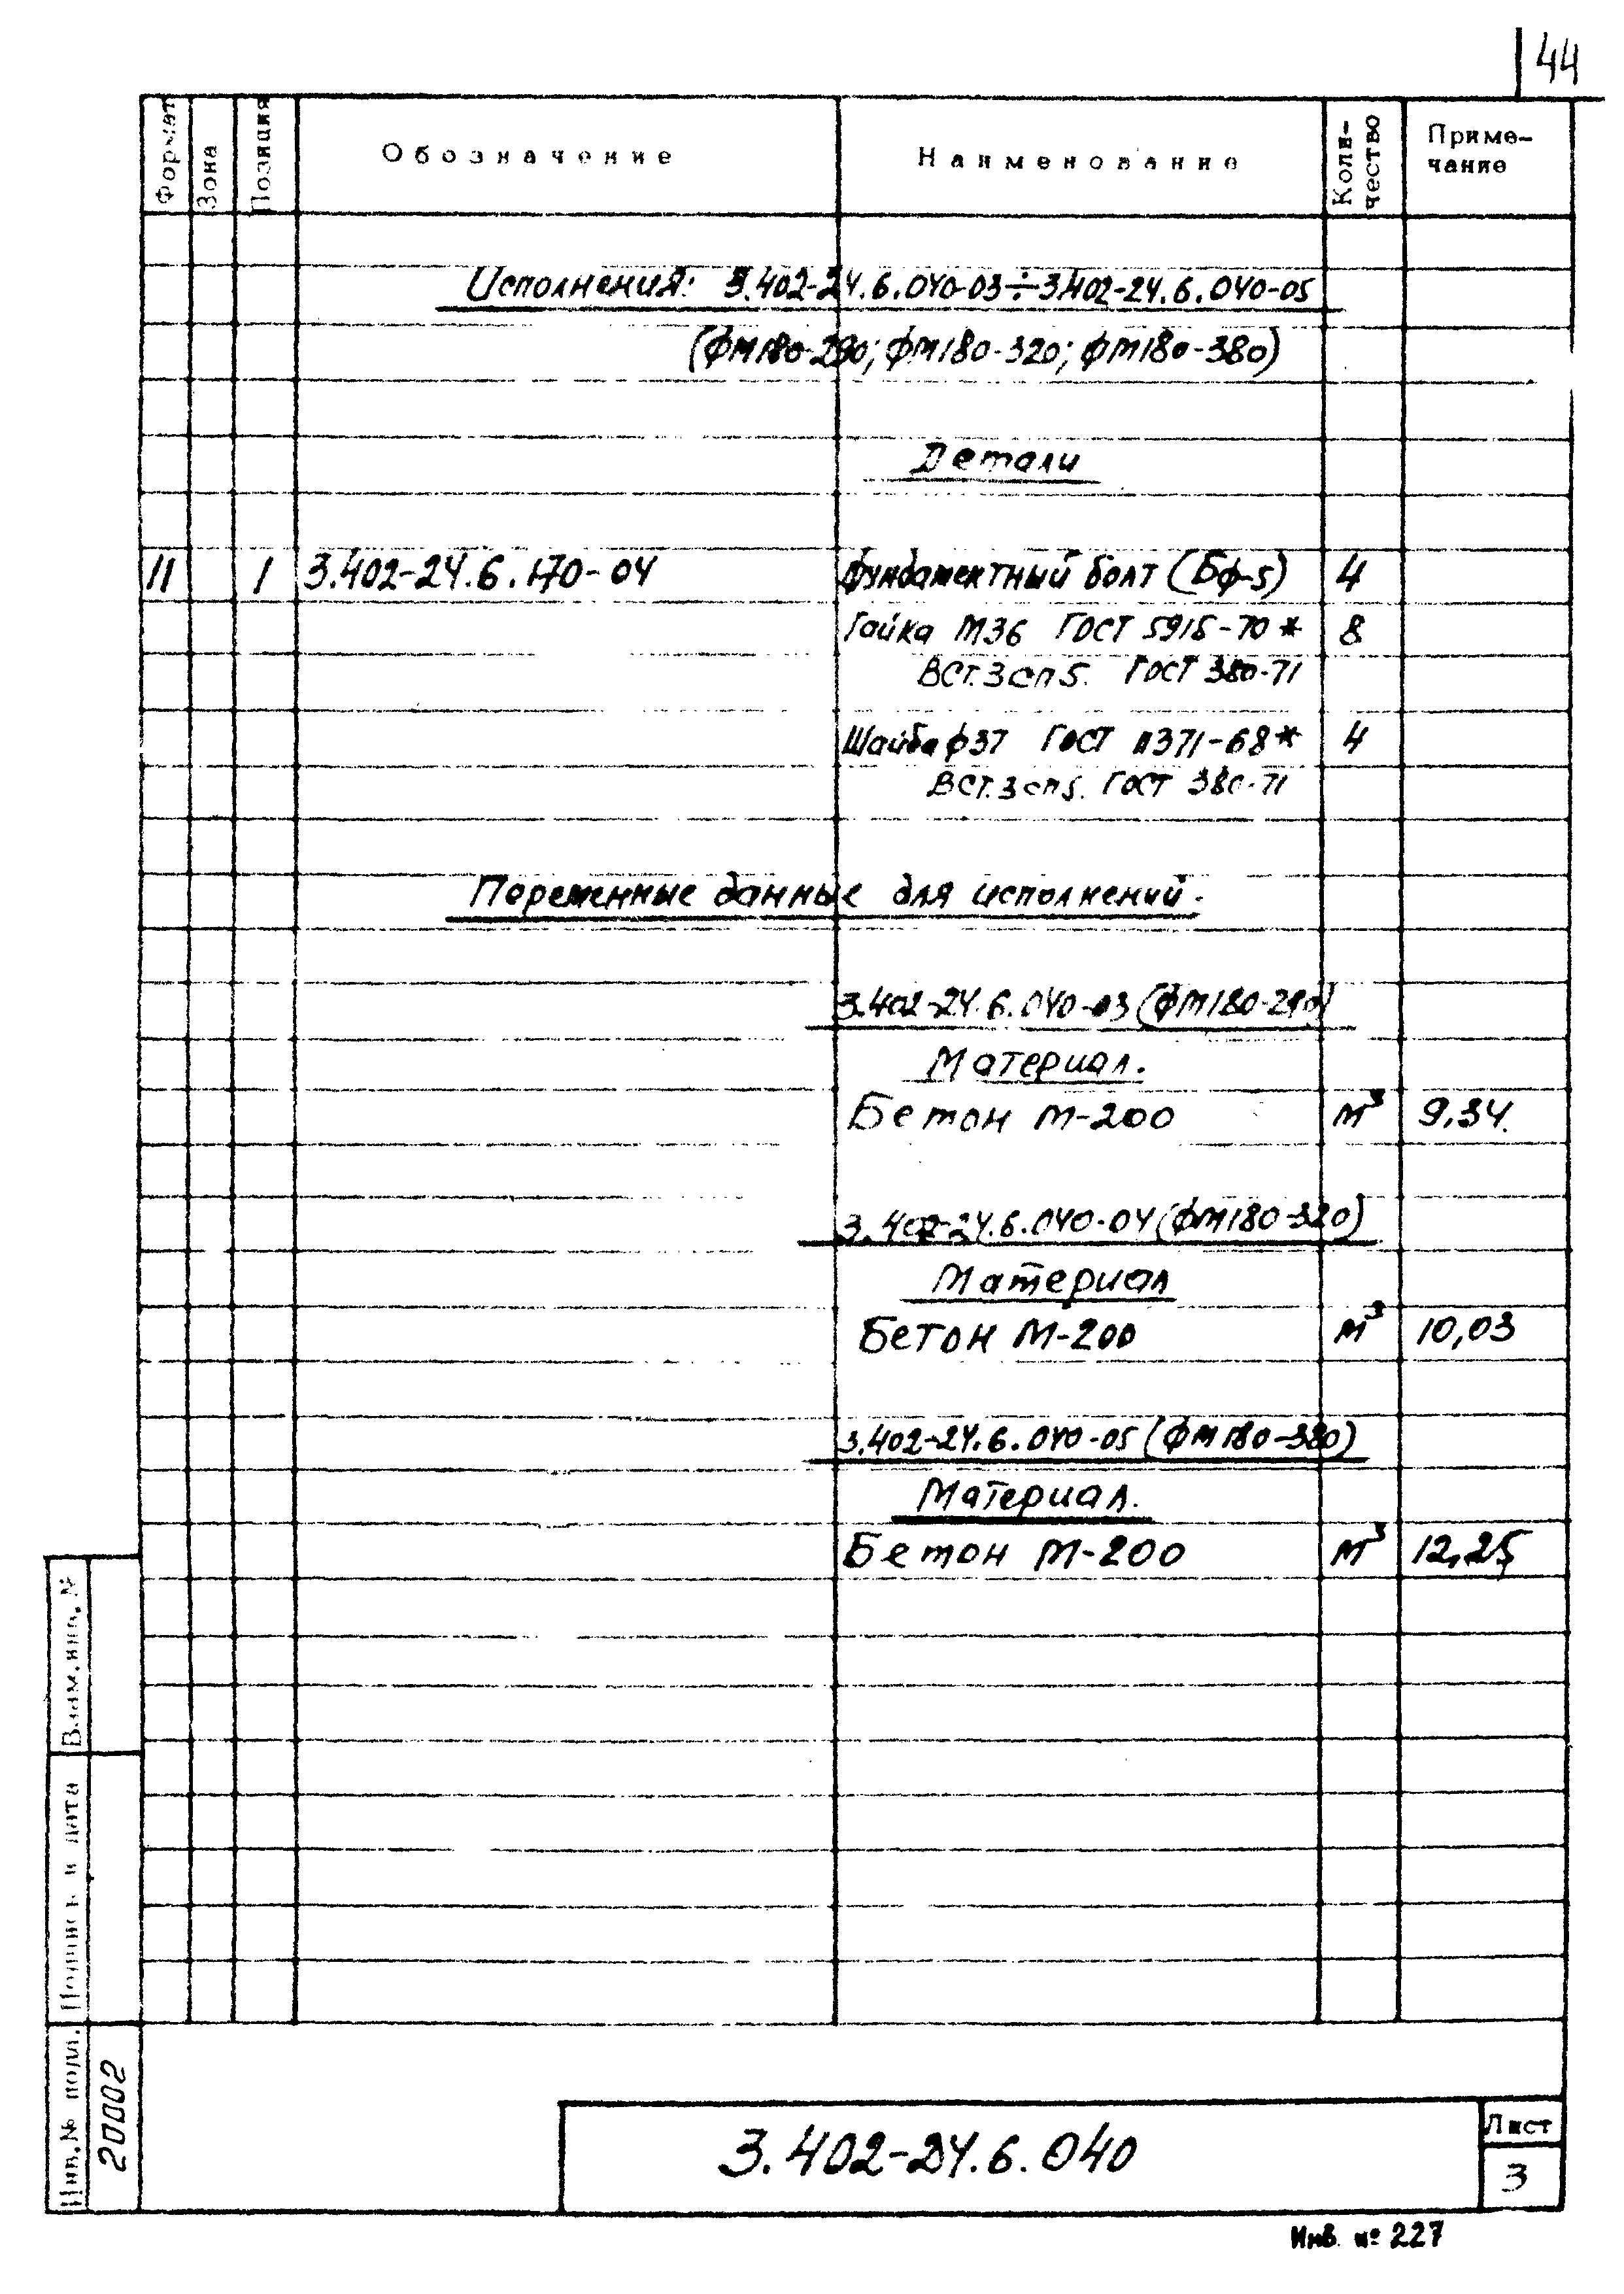 44
Формат Зона Позиция Обозначение Наименование Коли-чество Приме-чание
Исполнения: 3.402-24.6.040-03÷3.402-24.6.040-05
(ФМ180-290; ФМ180-320; ФМ180-380)
Детали
11 1 3.402-24.6.170-04 Фундаментный болт (Бф-5) 4
Гайка М36 ГОСТ 5915-70* 8
ВСт.3сп5. ГОСТ 380-71
Шайба ф37 ГОСТ 11371-68* 4
ВСт.3сп5. ГОСТ 380-71
Переменные данные для исполнений.
3.402-24.6.040-03 (ФМ180-290)
Материал.
Бетон М-200 м³ 9,34.
3.402-24.6.040-04 (ФМ180-320)
Материал
Бетон М-200 м³ 10,03
3.402-24.6.040-05 (ФМ180-380)
Материал.
Бетон М-200 м³ 12,25
Взам.инв.№
Подпись и дата
Инв.№ подл.
20002
3.402-24.6.040
Лист
3
Инв. № 227